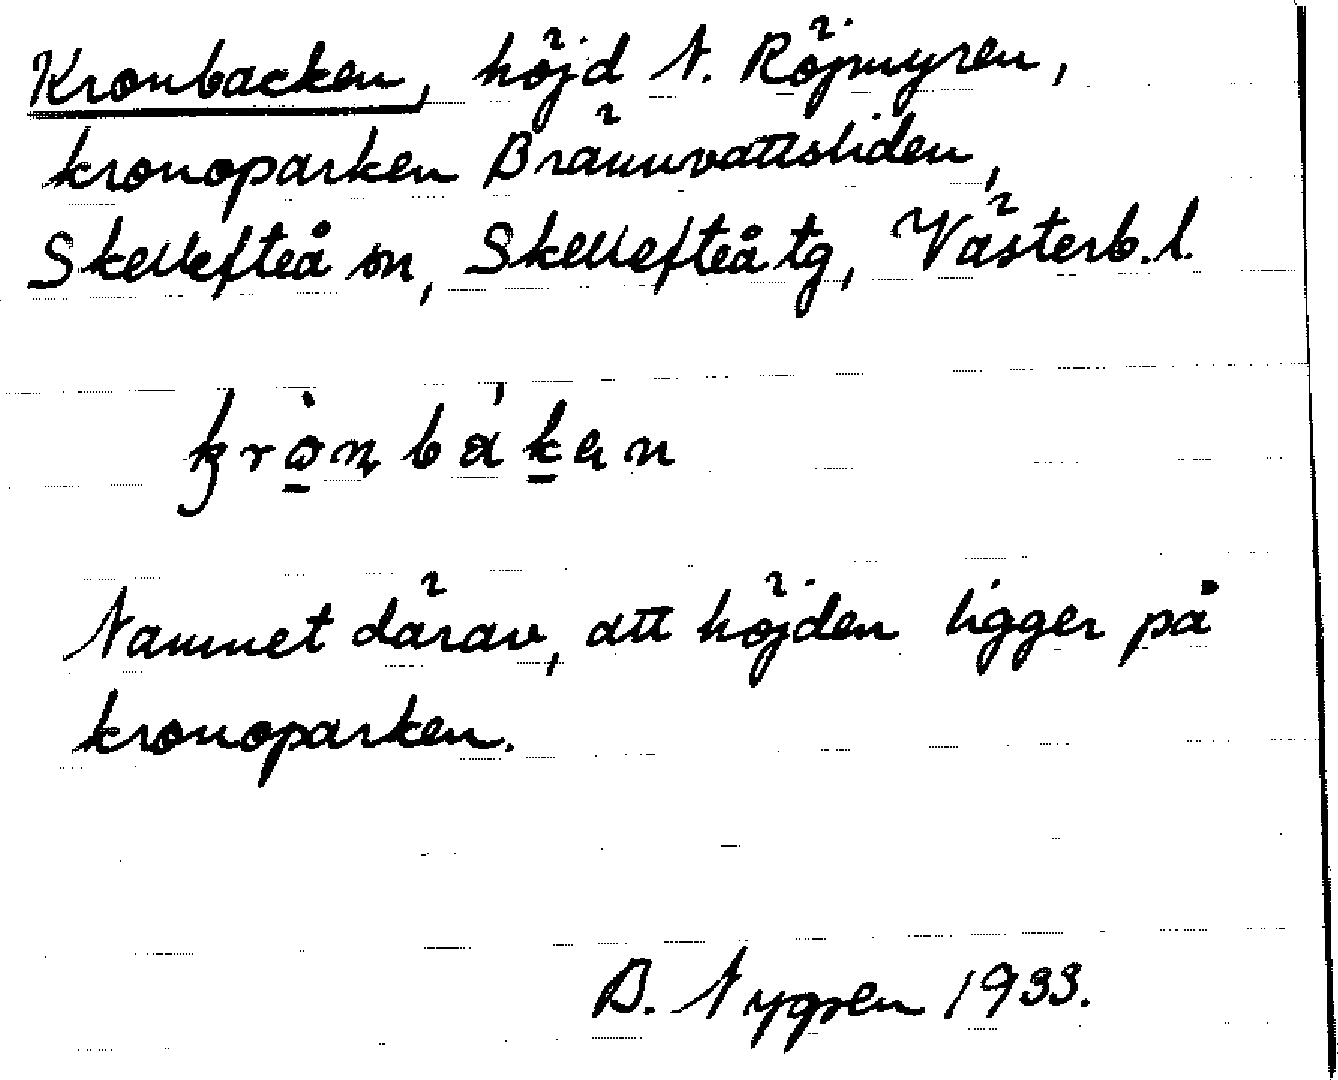 Kronbacken, höjd N. Röjmyren,
kronoparken Brännvattsliden,
Skellefteå sn, Skellefteå tg, Västerb. l.
Namnet därav, att höjden ligger på
kronoparken.
B. Nygren 1933.